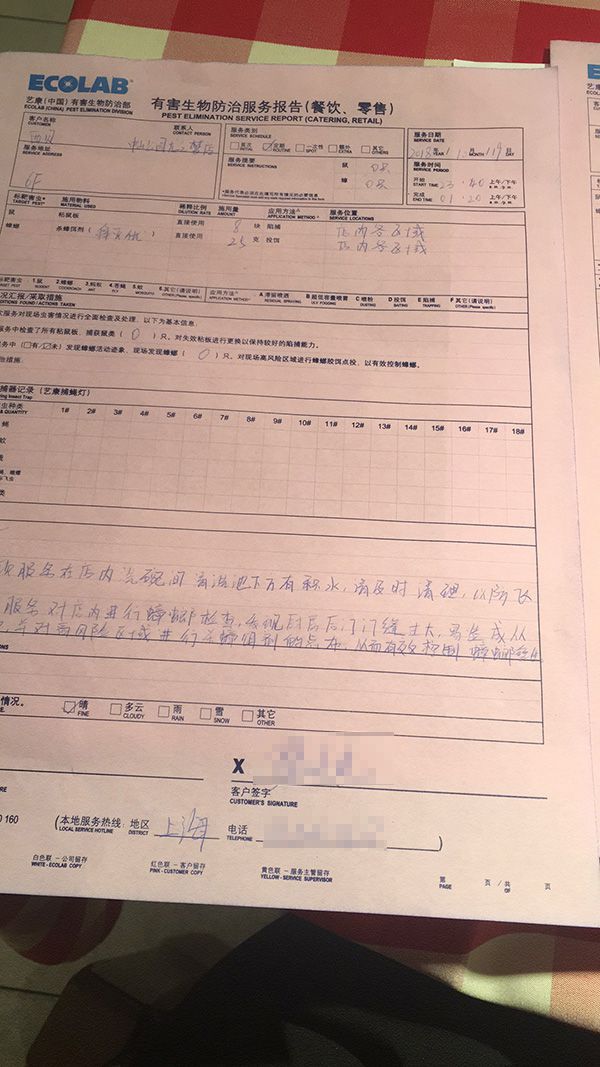 ECOLAB
艺康(中国)有害生物防治部
ECOLAB (CHINA) PEST ELIMINATION DIVISION
有害生物防治服务报告(餐饮、零售)
PEST ELIMINATION SERVICE REPORT (CATERING, RETAIL)
客户名称
CUSTOMER
联系人
CONTACT PERSON
服务地址
SERVICE ADDRESS
6F
服务类别
SERVICE SCHEDULE
首次 INITIAL 定期 ROUTINE 一次性 SPOT 额外 EXTRA 其它 OTHERS
服务提要
SERVICE INSTRUCTIONS
鼠
蟑
服务日期
SERVICE DATE
2018 年 YEAR 11 月 MONTH 19 日 DAY
服务时间
SERVICE PERIOD
开始 START TIME 23:40 上午/下午 a.m./p.m.
完成 END TIME 01:20 上午/下午 a.m./p.m.
标靶害虫* 施用物料 稀释比例 施用量 应用方法^ 服务位置
TARGET PEST* MATERIAL USED DILUTION RATE AMOUNT APPLICATION METHOD^ SERVICE LOCATIONS
鼠 粘鼠板 直接使用 8 块 陷捕 店内各区域
蟑螂 杀蟑饵剂 直接使用 25 克 投饵 店内各区域
标靶害虫 1.鼠 2.蟑螂 3.蚂蚁 4.苍蝇 5.蚊 6.其它(请说明) 应用方法^ A 滞留喷洒 B 超低容量喷雾 C 喷粉 D 投饵 E 陷捕 F 其它(请说明)
TARGET PEST RODENT COCKROACH ANT FLY MOSQUITO OTHER (Please specify) APPLICATION METHOD^ RESIDUAL SPRAYING ULV FOGGING DUSTING BAITING TRAPPING OTHER (Please specify)
况汇报/采取措施
DITIONS FOUND/ACTIONS TAKEN
次服务对现场虫害情况进行全面检查及处理,以下为基本信息:
服务中检查了所有粘鼠板,捕获鼠类(0)只。对失效粘板进行更换以保持较好的陷捕能力。
服务中(有/未)发现蟑螂活动迹象,现场发现蟑螂(0)只。对现场高风险区域进行蟑螂胶饵点投,以有效控制蟑螂。
他措施:
捕器记录(艺康捕蝇灯)
ring Insect Trap
生种类
& QUANTITY 1# 2# 3# 4# 5# 6# 7# 8# 9# 10# 11# 12# 13# 14# 15# 16# 17# 18#
蝇
蚊
类
次服务在店内洗碗间清洁池下方有积水,请及时清理,以防飞
服务对店内进行蟑螂检查,发现后厨后门门缝过大,易生成从
并对高风险区域进行杀蟑饵剂的点布,从而有效控制蟑螂
情况。 晴 FINE 多云 CLOUDY 雨 RAIN 雪 SNOW 其它 OTHER
X
客户签字
CUSTOMER'S SIGNATURE
0 160 (本地服务热线: 地区 上海 电话 )
LOCAL SERVICE HOTLINE DISTRICT TELEPHONE
白色联 - 公司留存 红色联 - 客户留存 黄色联 - 服务主管留存
WHITE-ECOLAB COPY PINK-CUSTOMER COPY YELLOW-SERVICE SUPERVISOR
第 页 / 共 页
PAGE OF